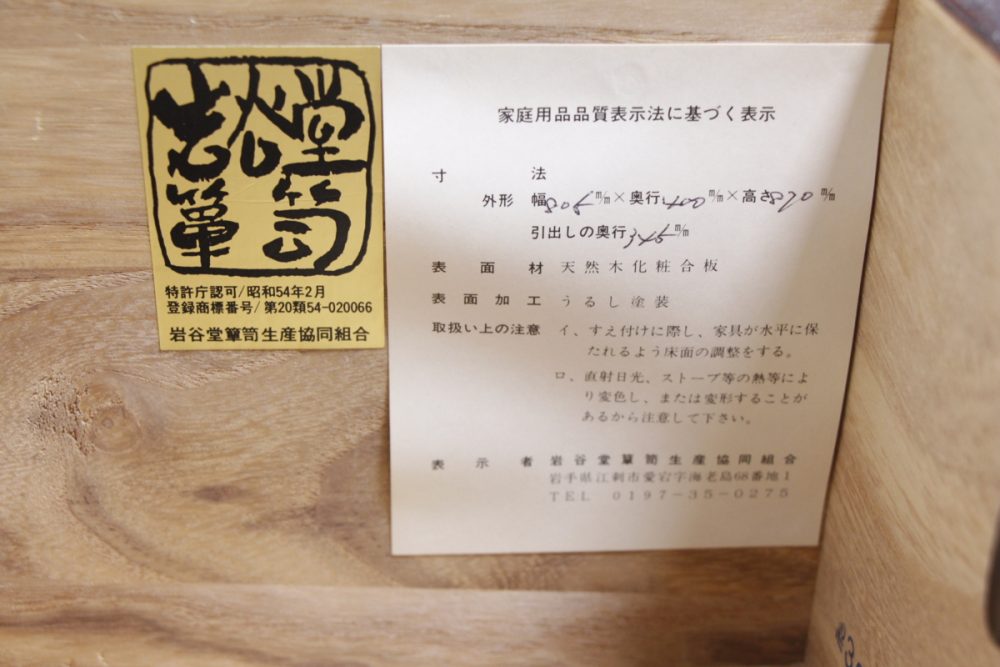 岩谷堂簞笥
特許庁認可/昭和54年2月
登録商標番号/第20類54-020066
岩谷堂簞笥生産協同組合
家庭用品品質表示法に基づく表示
寸法
外形 幅805m/m×奥行400m/m×高さ870m/m
引出しの奥行345m/m
表面材 天然木化粧合板
表面加工 うるし塗装
取扱い上の注意 イ、すえ付けに際し、家具が水平に保
たれるよう床面の調整をする。
ロ、直射日光、ストーブ等の熱等によ
り変色し、または変形することが
あるから注意して下さい。
表示者 岩谷堂簞笥生産協同組合
岩手県江刺市愛宕字海老島68番地1
TEL 0197-35-0275